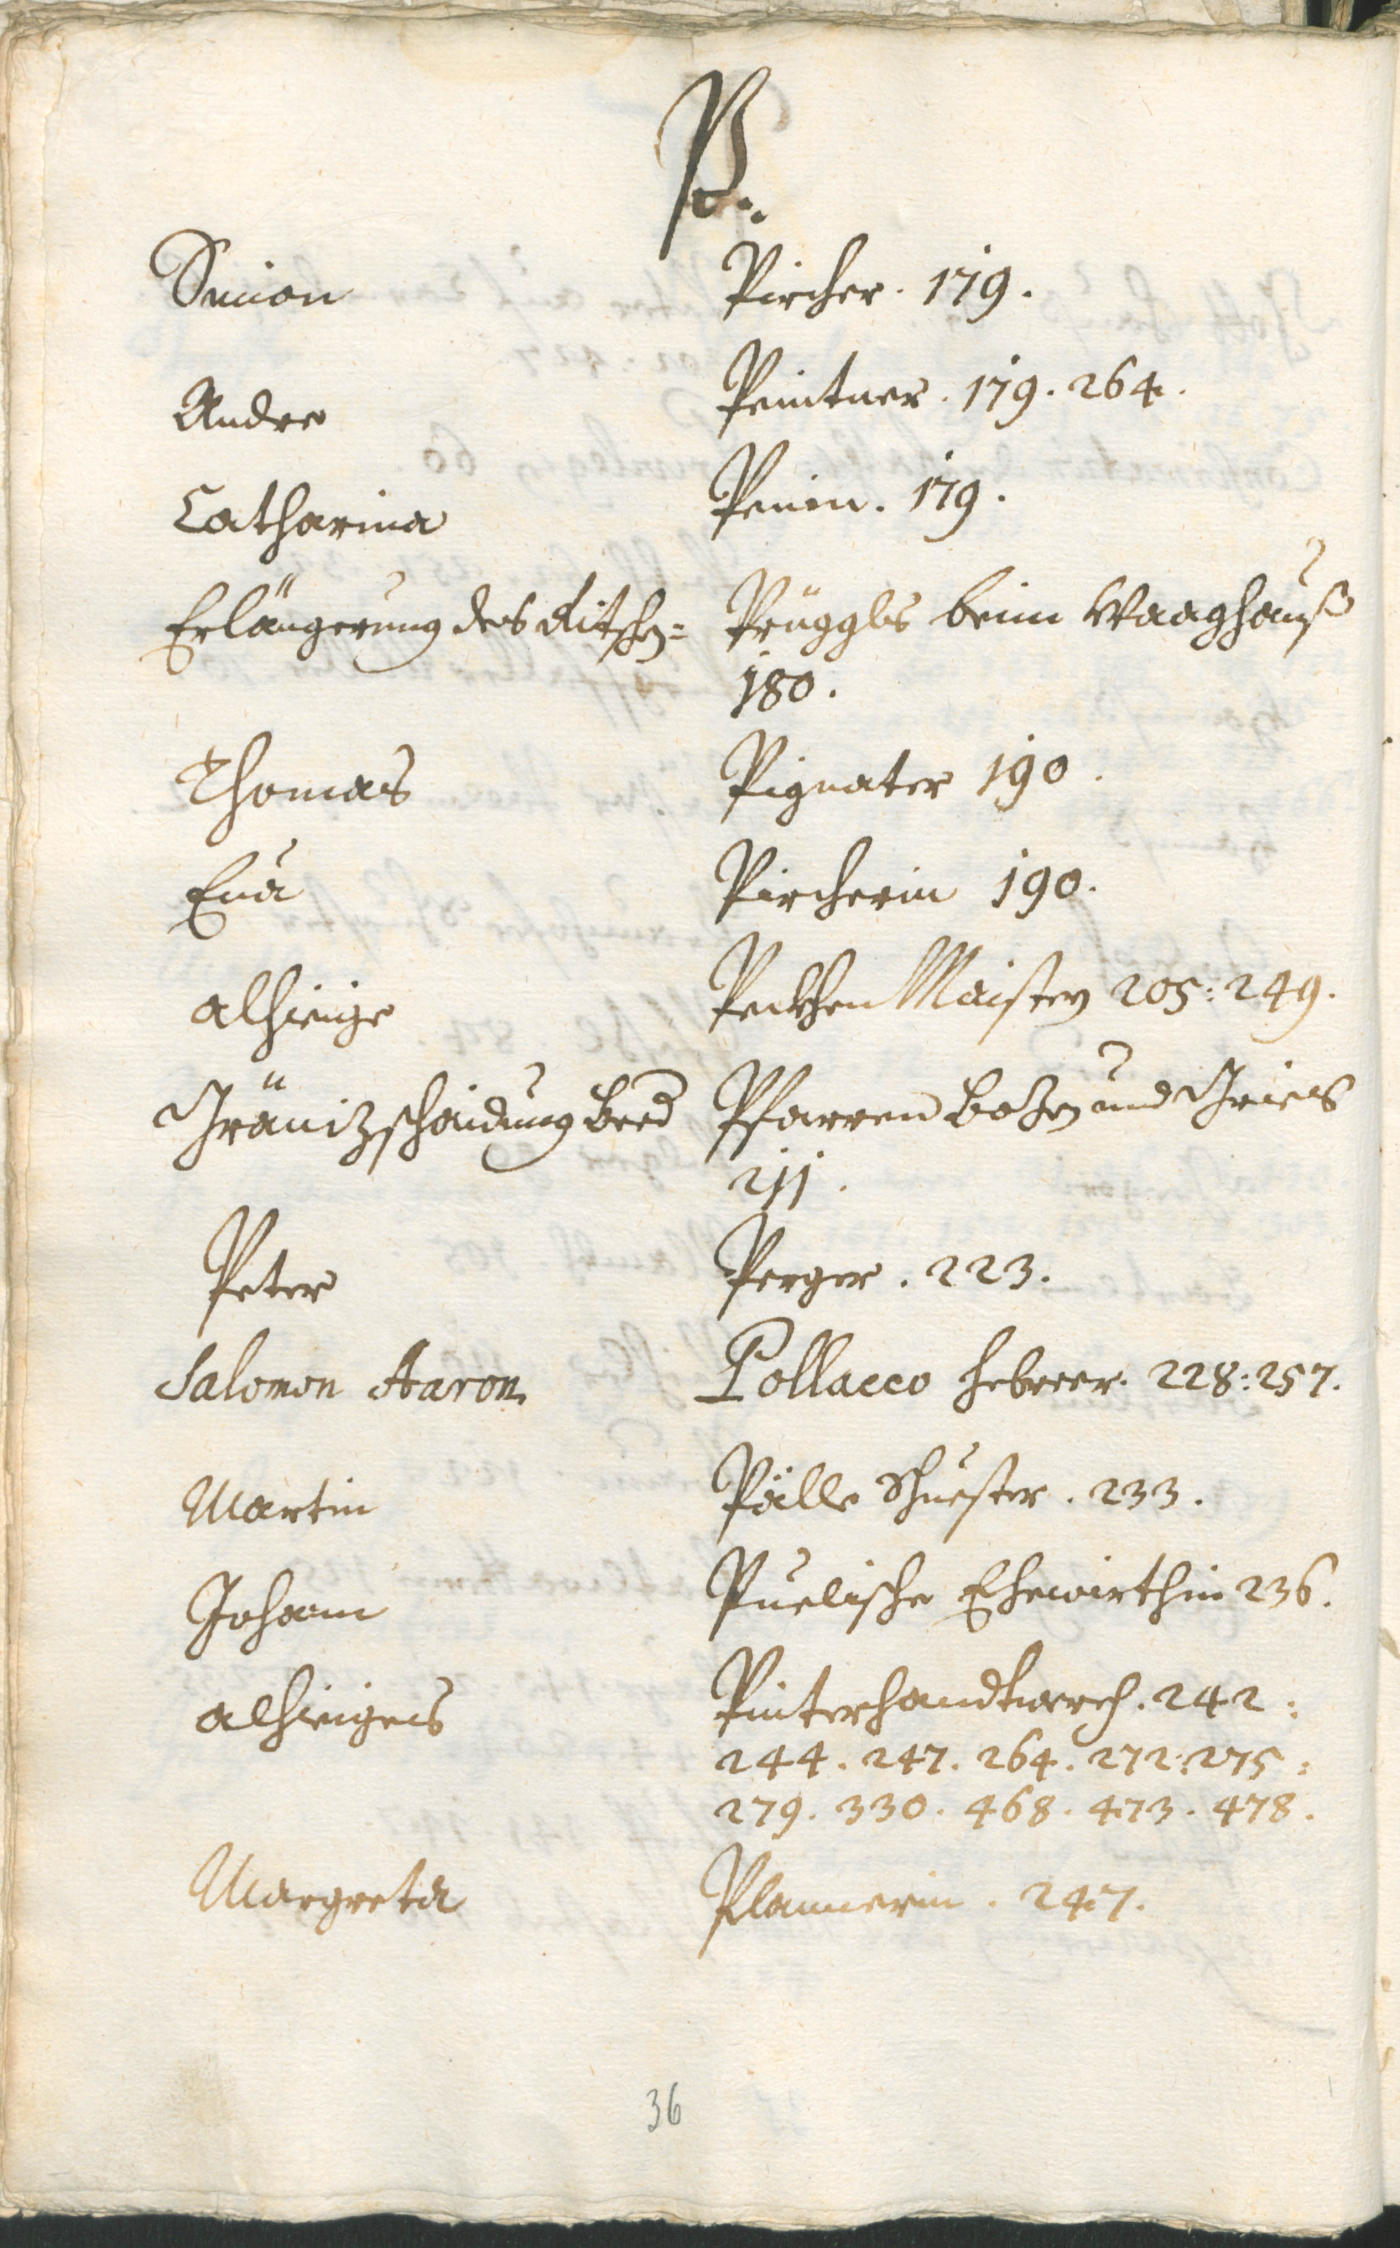 P.
Simon Pircher. 179.
Andre Peintner. 179. 264.
Catharina Penin. 179.
Erlängerung des Ritschen= Prüggls beim Waaghauß
180.
Thomas Pignater 190.
Eua Pircherin 190.
alhieige Peckhen Maister 205: 249.
Gränizschaidung beed Pfarren Bozen und Gries
211.
Peter Perger. 223.
Salomon Aaron Pollacco hebreer. 228: 257.
Martin Pälle Schuester. 233.
Johann Puelische Ehewirthin 236.
alhieiges Pinterhandtwerch. 242:
244. 247. 264. 272: 275:
279. 330. 468. 473. 478.
Margreta Plannerin. 247.
36